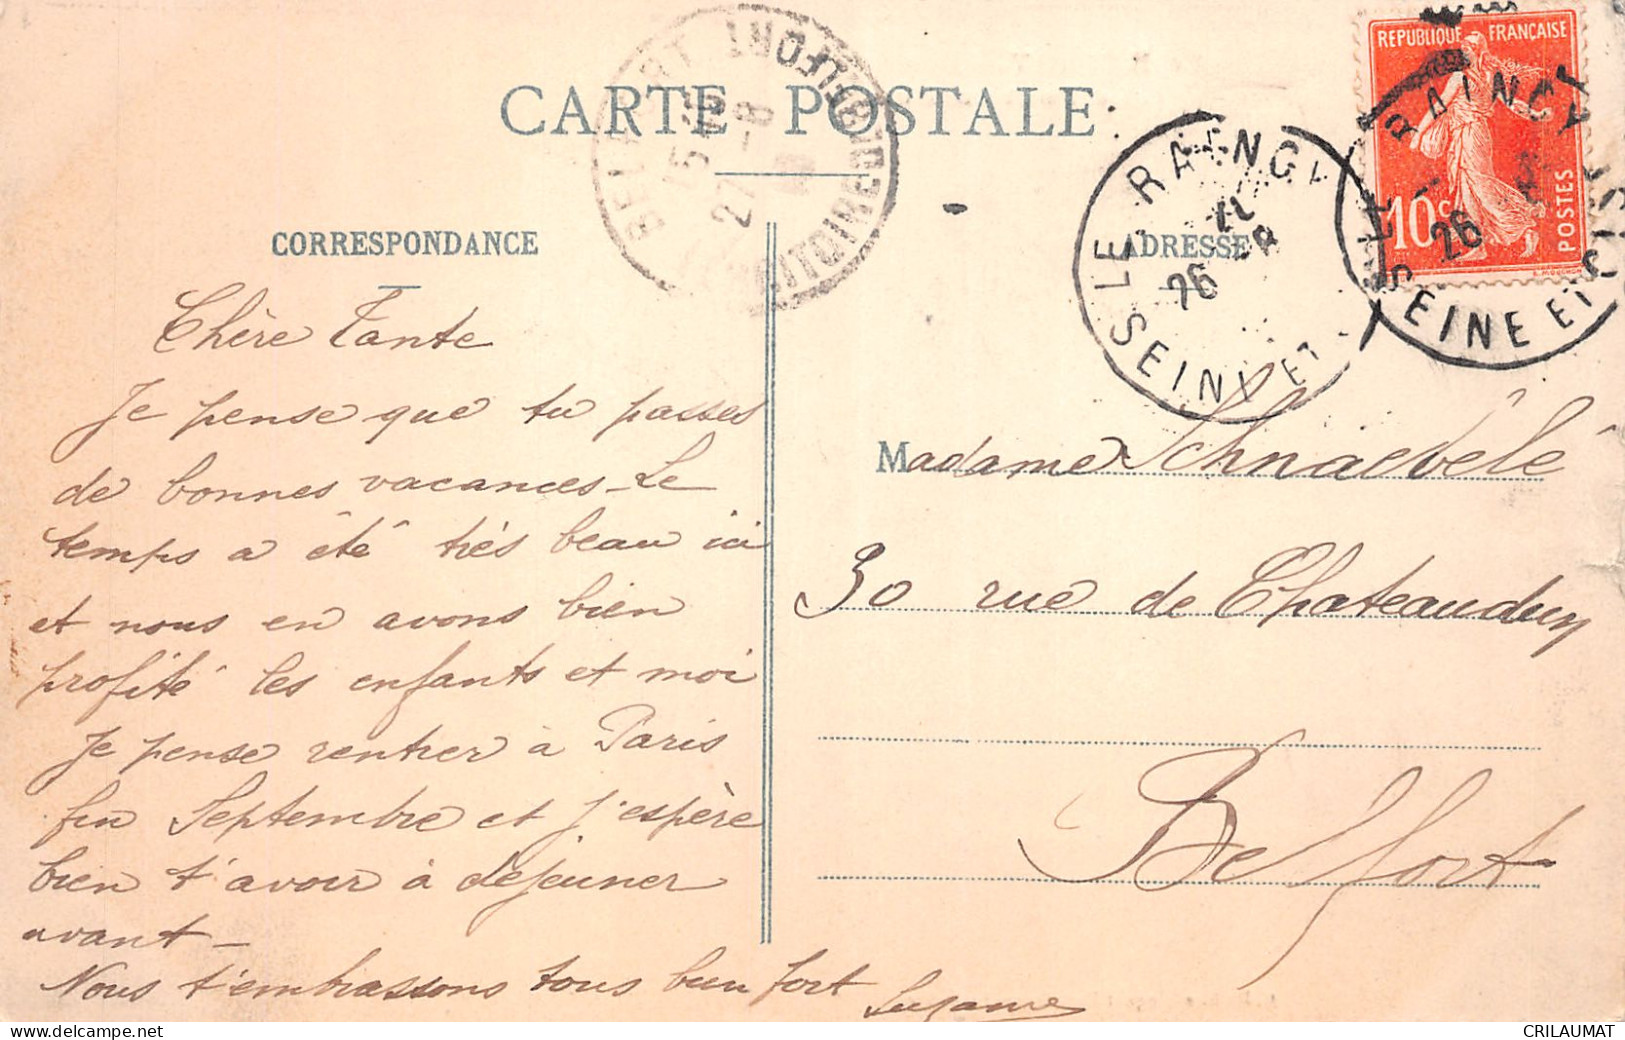 CARTE POSTALE
CORRESPONDANCE
Chère Tante
Je pense que tu passes
de bonnes vacances. Le
temps a été très beau ici
et nous en avons bien
profité les enfants et moi
Je pense rentrer à Paris
fin Septembre et j'espère
bien t'avoir à déjeuner
avant_
Nous t'embrassons tous bien fort
Suzanne
BELFORT
TERRITOIRE DE BELFORT
27 -8
LE RAINCY
26
SEINE ET
RÉPUBLIQUE FRANÇAISE
10c
POSTES
LE RAINCY
26
SEINE ET OISE
ADRESSE
Madame Schnaebelé
30 rue de Chateaudun
Belfort
CRILAUMAT